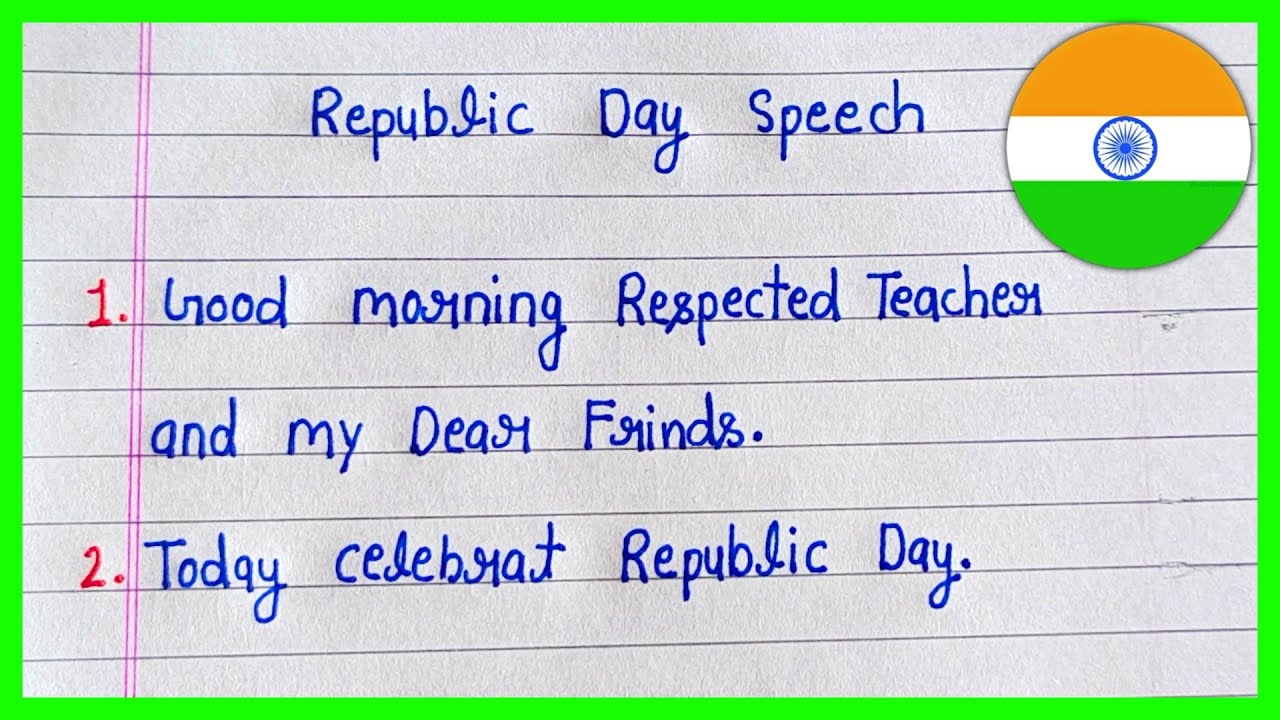 Republic Day Speech
1. Good morning Respected Teacher
and my Dear Frinds.
2. Today celebrat Republic Day.